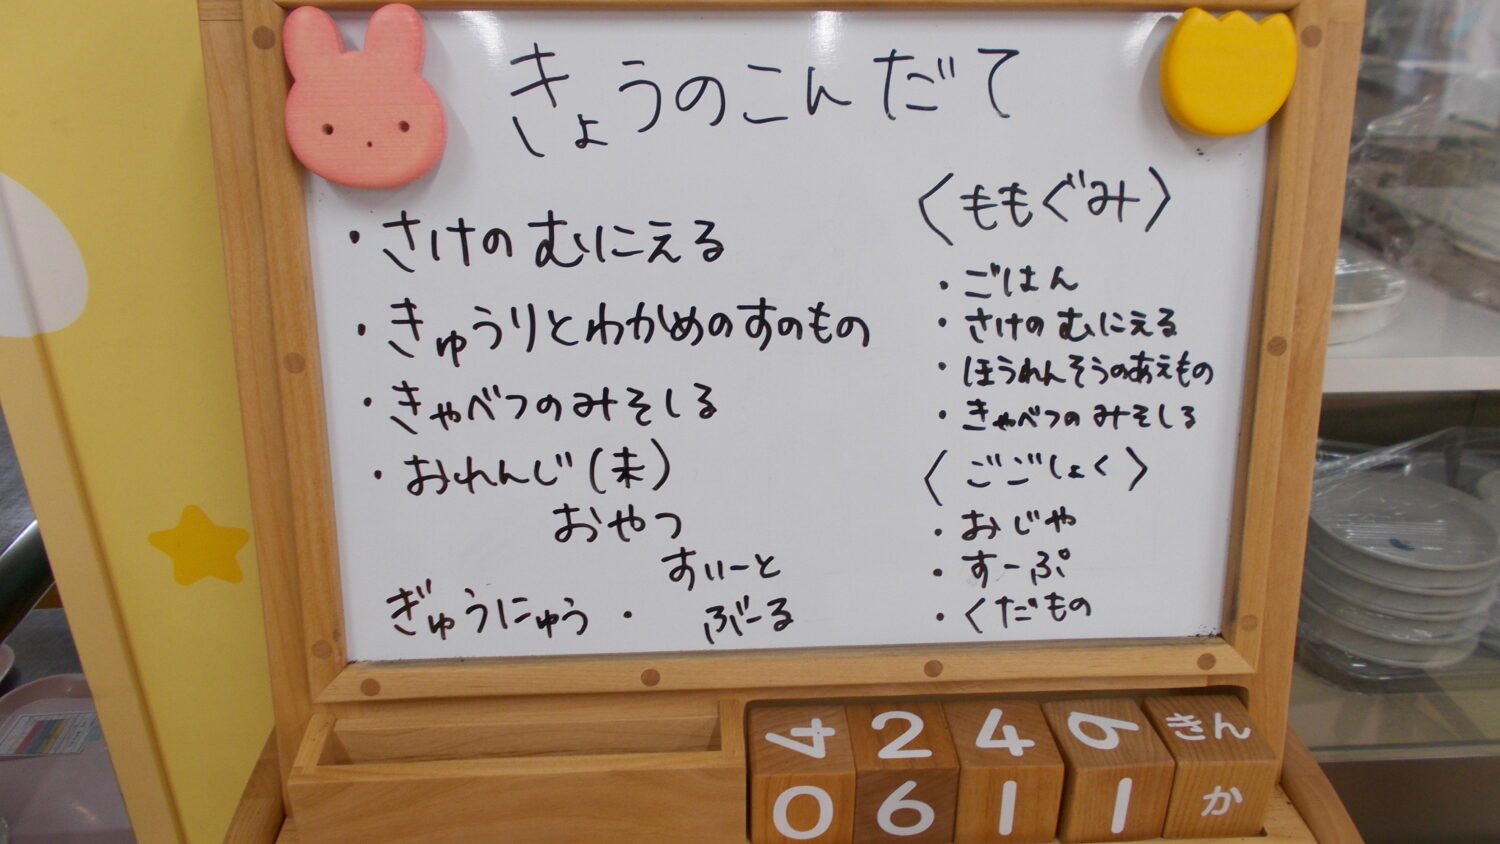 きょうのこんだて
・さけのむにえる
・きゅうりとわかめのすのもの
・きゃべつのみそしる
・おれんじ(未)
おやつ
すいーと
ぎゅうにゅう・ぶーる
〈ももぐみ〉
・ごはん
・さけのむにえる
・ほうれんそうのあえもの
・きゃべつのみそしる
〈ごごしょく〉
・おじや
・すーぷ
・くだもの
4 2 4 9 きん
0 6 1 1 か